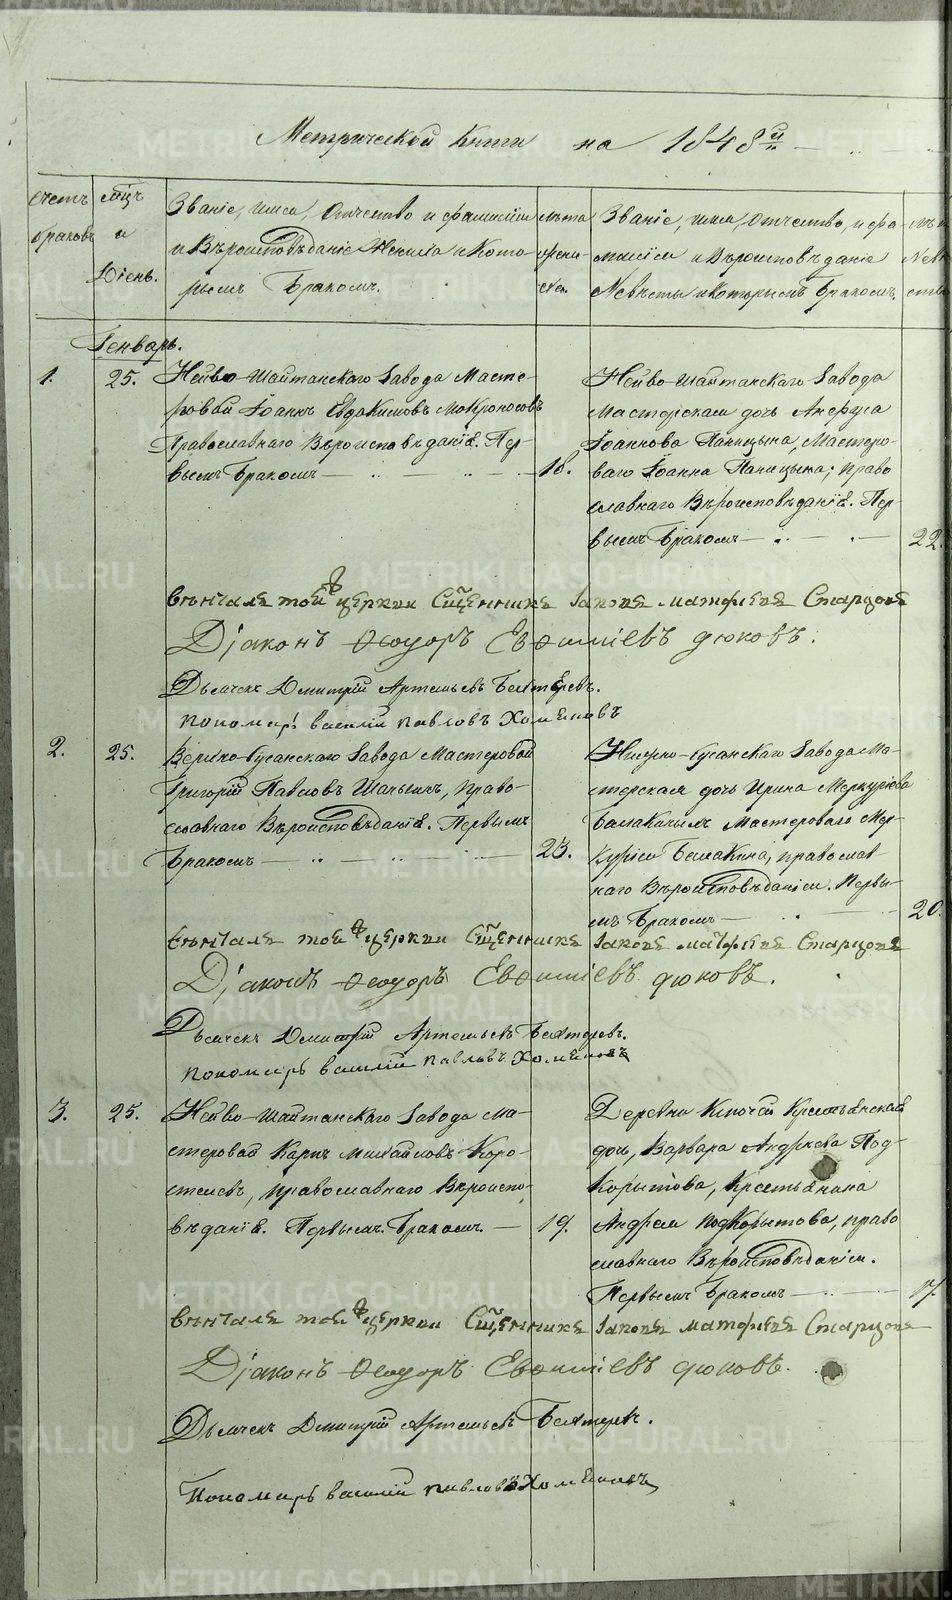 Метрической Книги на 1848й
счетъ браковъ
мцъ и Діень.
Званіе, имя, Отчество и фамилія
и Вѣроисповѣданіе Жениха и Кото-
рымъ Бракомъ.
лѣта
жени-
ха.
Званіе, имя, Отчество, и фа-
милія и Вѣроисповѣданіе
Невѣсты и Которымъ Бракомъ.
Генварь.
1. 25.
Нейво-Шайтанскаго Завода Масте-
ровой Іоаннъ Евдакимовъ Мокроносовъ
Православнаго Вѣроисповѣданія. Пер-
вымъ Бракомъ
18.
Нейво-Шайтанскаго Завода
Мастерская дочь Анфуса
Іоаннова Паницына, Мастеро-
ваго Іоанна Паницына; право
славнаго Вѣроисповѣданія. Пер-
вымъ Бракомъ
22.
вѣнчалъ той церкви Сщенникъ Іаковъ Матфѣевъ Старцовъ
Діаконъ Ѳеодоръ Евѳиміевъ дюковъ.
Дьячекъ Дмитрій Артемьевъ Бехтеревъ.
пономарь василій павловъ Хомяковъ
2. 25.
Верхно-Сусанскаго Завода Мастеровой
Григорій Павловъ Шаньгинъ, Право-
славнаго Вѣроисповѣданія. Первымъ
Бракомъ
23.
Нижно-Сусанскаго Завода Ма-
стерская дочь Ирина Меркурьева
Балакиныхъ Мастероваго Мер-
курія Балакина, православ-
наго Вѣроисповѣданія. Первы-
мъ Бракомъ
20.
вѣнчалъ той церкви Сщенникъ Іаковъ Матфѣевъ Старцовъ
Діаконъ Ѳеодоръ Евѳиміевъ дюковъ.
Дьячекъ Дмитрій Артемьевъ Бехтеревъ.
пономарь василій павловъ Хомяковъ
3. 25.
Нейво-Шайтанскаго Завода Ма-
стеровой Карпъ Михайловъ Коро-
стелевъ, православнаго Вѣроиспо-
вѣданія. Первымъ Бракомъ.
19.
Деревни Ключей Крестьянская
дочь, Варвара Андреева Под-
корытова, Крестьянина
Андрея Подкорытова, право
славнаго Вѣроисповѣданія.
Первымъ Бракомъ
17.
вѣнчалъ той церкви Сщенникъ Іаковъ Матфѣевъ Старцовъ
Діаконъ Ѳеодоръ Евѳиміевъ дюковъ.
Дьячекъ Дмитрій Артемьевъ Бехтеревъ.
Пономарь василій павловъ Хомяковъ
METRIKI.GASO-URAL.RU